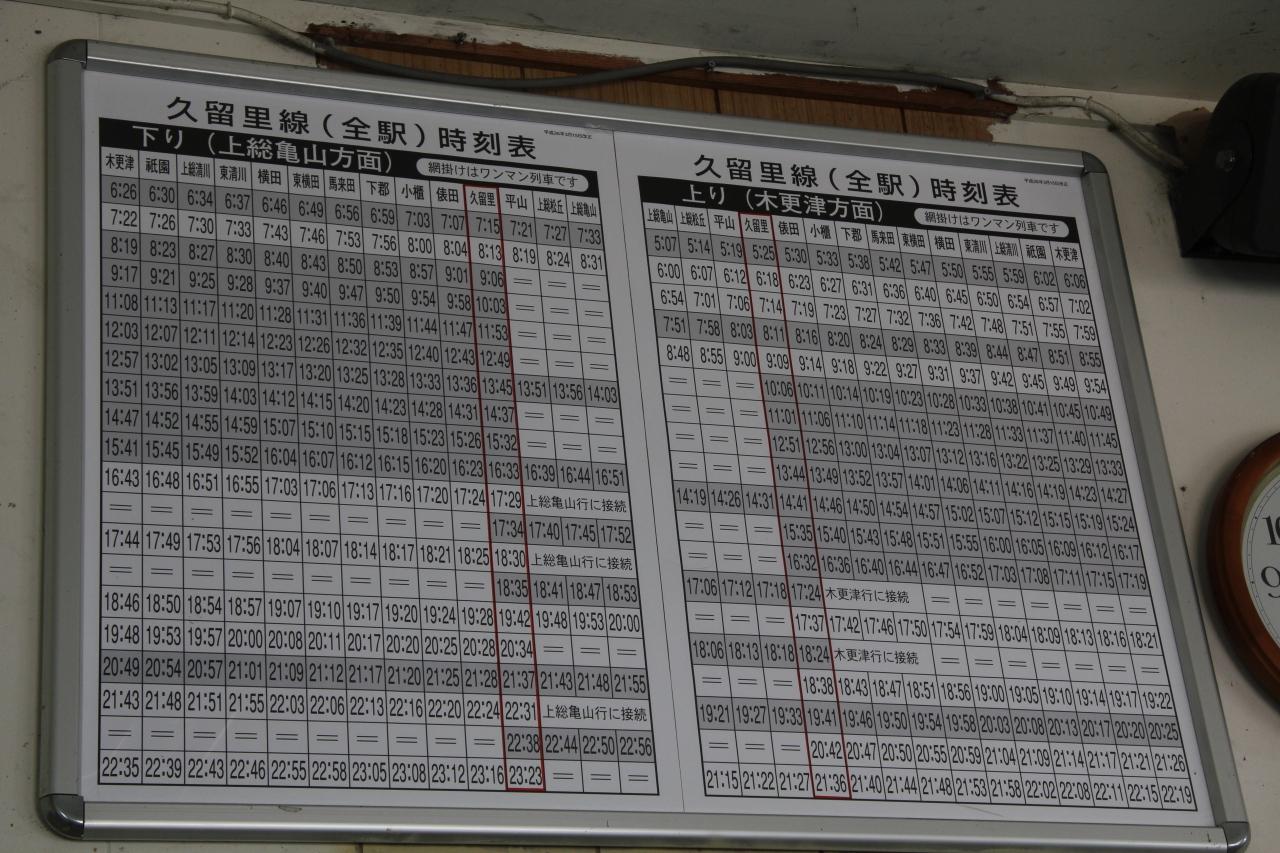 久留里線（全駅）時刻表
下り（上総亀山方面） 網掛けはワンマン列車です
木更津 祇園 上総清川 東清川 横田 東横田 馬来田 下郡 小櫃 俵田 久留里 平山 上総松丘 上総亀山
6:26 6:30 6:34 6:37 6:46 6:49 6:56 6:59 7:03 7:07 7:15 7:21 7:27 7:33
7:22 7:26 7:30 7:33 7:43 7:46 7:53 7:56 8:00 8:04 8:13 8:19 8:24 8:31
8:19 8:23 8:27 8:30 8:40 8:43 8:50 8:53 8:57 9:01 9:06 = = =
9:17 9:21 9:25 9:28 9:37 9:40 9:47 9:50 9:54 9:58 10:03 = = =
11:08 11:13 11:17 11:20 11:28 11:31 11:36 11:39 11:44 11:47 11:53 = = =
12:03 12:07 12:11 12:14 12:23 12:26 12:32 12:35 12:40 12:43 12:49 = = =
12:57 13:02 13:05 13:09 13:17 13:20 13:25 13:28 13:33 13:36 13:45 13:51 13:56 14:03
13:51 13:56 13:59 14:03 14:12 14:15 14:20 14:23 14:28 14:31 14:37 = = =
14:47 14:52 14:55 14:59 15:07 15:10 15:15 15:18 15:23 15:26 15:32 = = =
15:41 15:45 15:49 15:52 16:04 16:07 16:12 16:15 16:20 16:23 16:33 16:39 16:44 16:51
16:43 16:48 16:51 16:55 17:03 17:06 17:13 17:16 17:20 17:24 17:29 上総亀山行に接続
= = = = = = = = = = 17:34 17:40 17:45 17:52
17:44 17:49 17:53 17:56 18:04 18:07 18:14 18:17 18:21 18:25 18:30 上総亀山行に接続
= = = = = = = = = = 18:35 18:41 18:47 18:53
18:46 18:50 18:54 18:57 19:07 19:10 19:17 19:20 19:24 19:28 19:42 19:48 19:53 20:00
19:48 19:53 19:57 20:00 20:08 20:11 20:17 20:20 20:25 20:28 20:34 = = =
20:49 20:54 20:57 21:01 21:09 21:12 21:17 21:20 21:25 21:28 21:37 21:43 21:48 21:55
21:43 21:48 21:51 21:55 22:03 22:06 22:13 22:16 22:20 22:24 22:31 上総亀山行に接続
= = = = = = = = = = 22:38 22:44 22:50 22:56
22:35 22:39 22:43 22:46 22:55 22:58 23:05 23:08 23:12 23:16 23:23 = = =
久留里線（全駅）時刻表
上り（木更津方面） 網掛けはワンマン列車です
上総亀山 上総松丘 平山 久留里 俵田 小櫃 下郡 馬来田 東横田 横田 東清川 上総清川 祇園 木更津
5:07 5:14 5:19 5:25 5:30 5:33 5:38 5:42 5:47 5:50 5:55 5:59 6:02 6:06
6:00 6:07 6:12 6:18 6:23 6:27 6:31 6:36 6:40 6:45 6:50 6:54 6:57 7:02
6:54 7:01 7:06 7:14 7:19 7:23 7:27 7:32 7:36 7:42 7:48 7:51 7:55 7:59
7:51 7:58 8:03 8:11 8:16 8:20 8:24 8:29 8:33 8:39 8:44 8:47 8:51 8:55
8:48 8:55 9:00 9:09 9:14 9:18 9:22 9:27 9:31 9:37 9:42 9:45 9:49 9:54
= = = 10:06 10:11 10:14 10:19 10:23 10:28 10:33 10:38 10:41 10:45 10:49
= = = 11:01 11:06 11:10 11:14 11:18 11:23 11:28 11:33 11:37 11:40 11:45
= = = 12:51 12:56 13:00 13:04 13:07 13:12 13:16 13:22 13:25 13:29 13:33
= = = 13:44 13:49 13:52 13:57 14:01 14:06 14:11 14:16 14:19 14:23 14:27
14:19 14:26 14:31 14:41 14:46 14:50 14:54 14:57 15:02 15:07 15:12 15:15 15:19 15:24
= = = 15:35 15:40 15:43 15:48 15:51 15:55 16:00 16:05 16:09 16:12 16:17
= = = 16:32 16:36 16:40 16:44 16:47 16:52 17:03 17:08 17:11 17:15 17:19
17:06 17:12 17:18 17:24 木更津行に接続 = = = = = = =
= = = 17:37 17:42 17:46 17:50 17:54 17:59 18:04 18:09 18:13 18:16 18:21
18:06 18:13 18:18 18:24 木更津行に接続 = = = = = = =
= = = 18:38 18:43 18:47 18:51 18:56 19:00 19:05 19:10 19:14 19:17 19:22
19:21 19:27 19:33 19:41 19:46 19:50 19:54 19:58 20:03 20:08 20:13 20:17 20:20 20:25
= = = 20:42 20:47 20:50 20:55 20:59 21:04 21:09 21:14 21:17 21:21 21:26
21:15 21:22 21:27 21:36 21:40 21:44 21:48 21:53 21:58 22:02 22:08 22:11 22:15 22:19
10
9